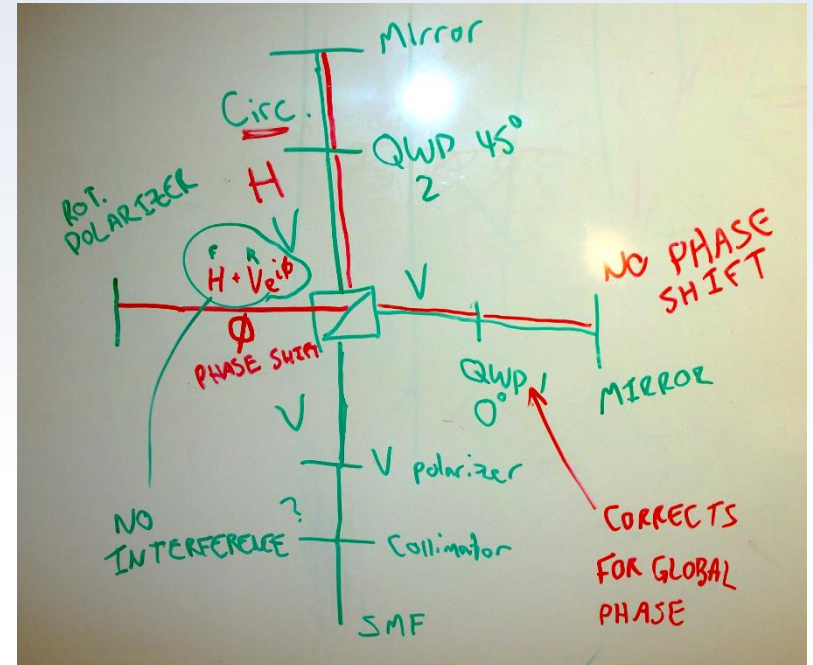 Mirror
Circ.
QWP 45°
2
H
ROT.
POLARIZER
V
F R
H + Ve^iϕ
NO PHASE
SHIFT
V
Ø
PHASE SHIFT
QWP 1
0°
MIRROR
V
V polarizer
NO
INTERFERENCE?
Collimator
SMF
CORRECTS
FOR GLOBAL
PHASE